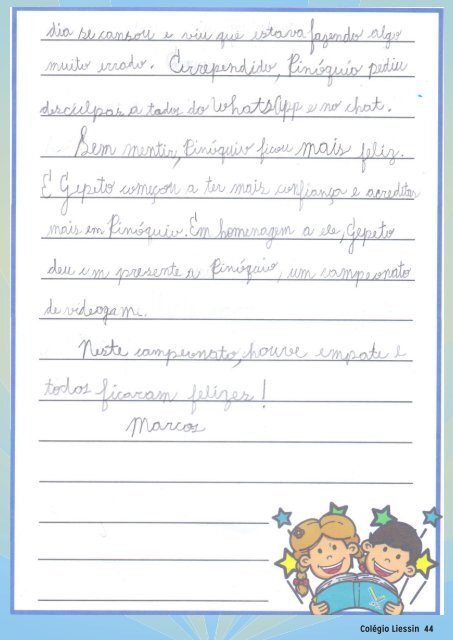 dia se cansou e viu que estava fazendo algo
muito errado. Arrependido, Pinóquio pediu
desculpas a todos do WhatsApp e no chat.
Sem mentir, Pinóquio ficou mais feliz.
E Gepeto começou a ter mais confiança e acreditar
mais em Pinóquio. Em homenagem a ele, Gepeto
deu um presente a Pinóquio, um campeonato
de videogame.
Neste campeonato, houve empate e
todos ficaram felizes!
Marcos
Colégio Liessin 44